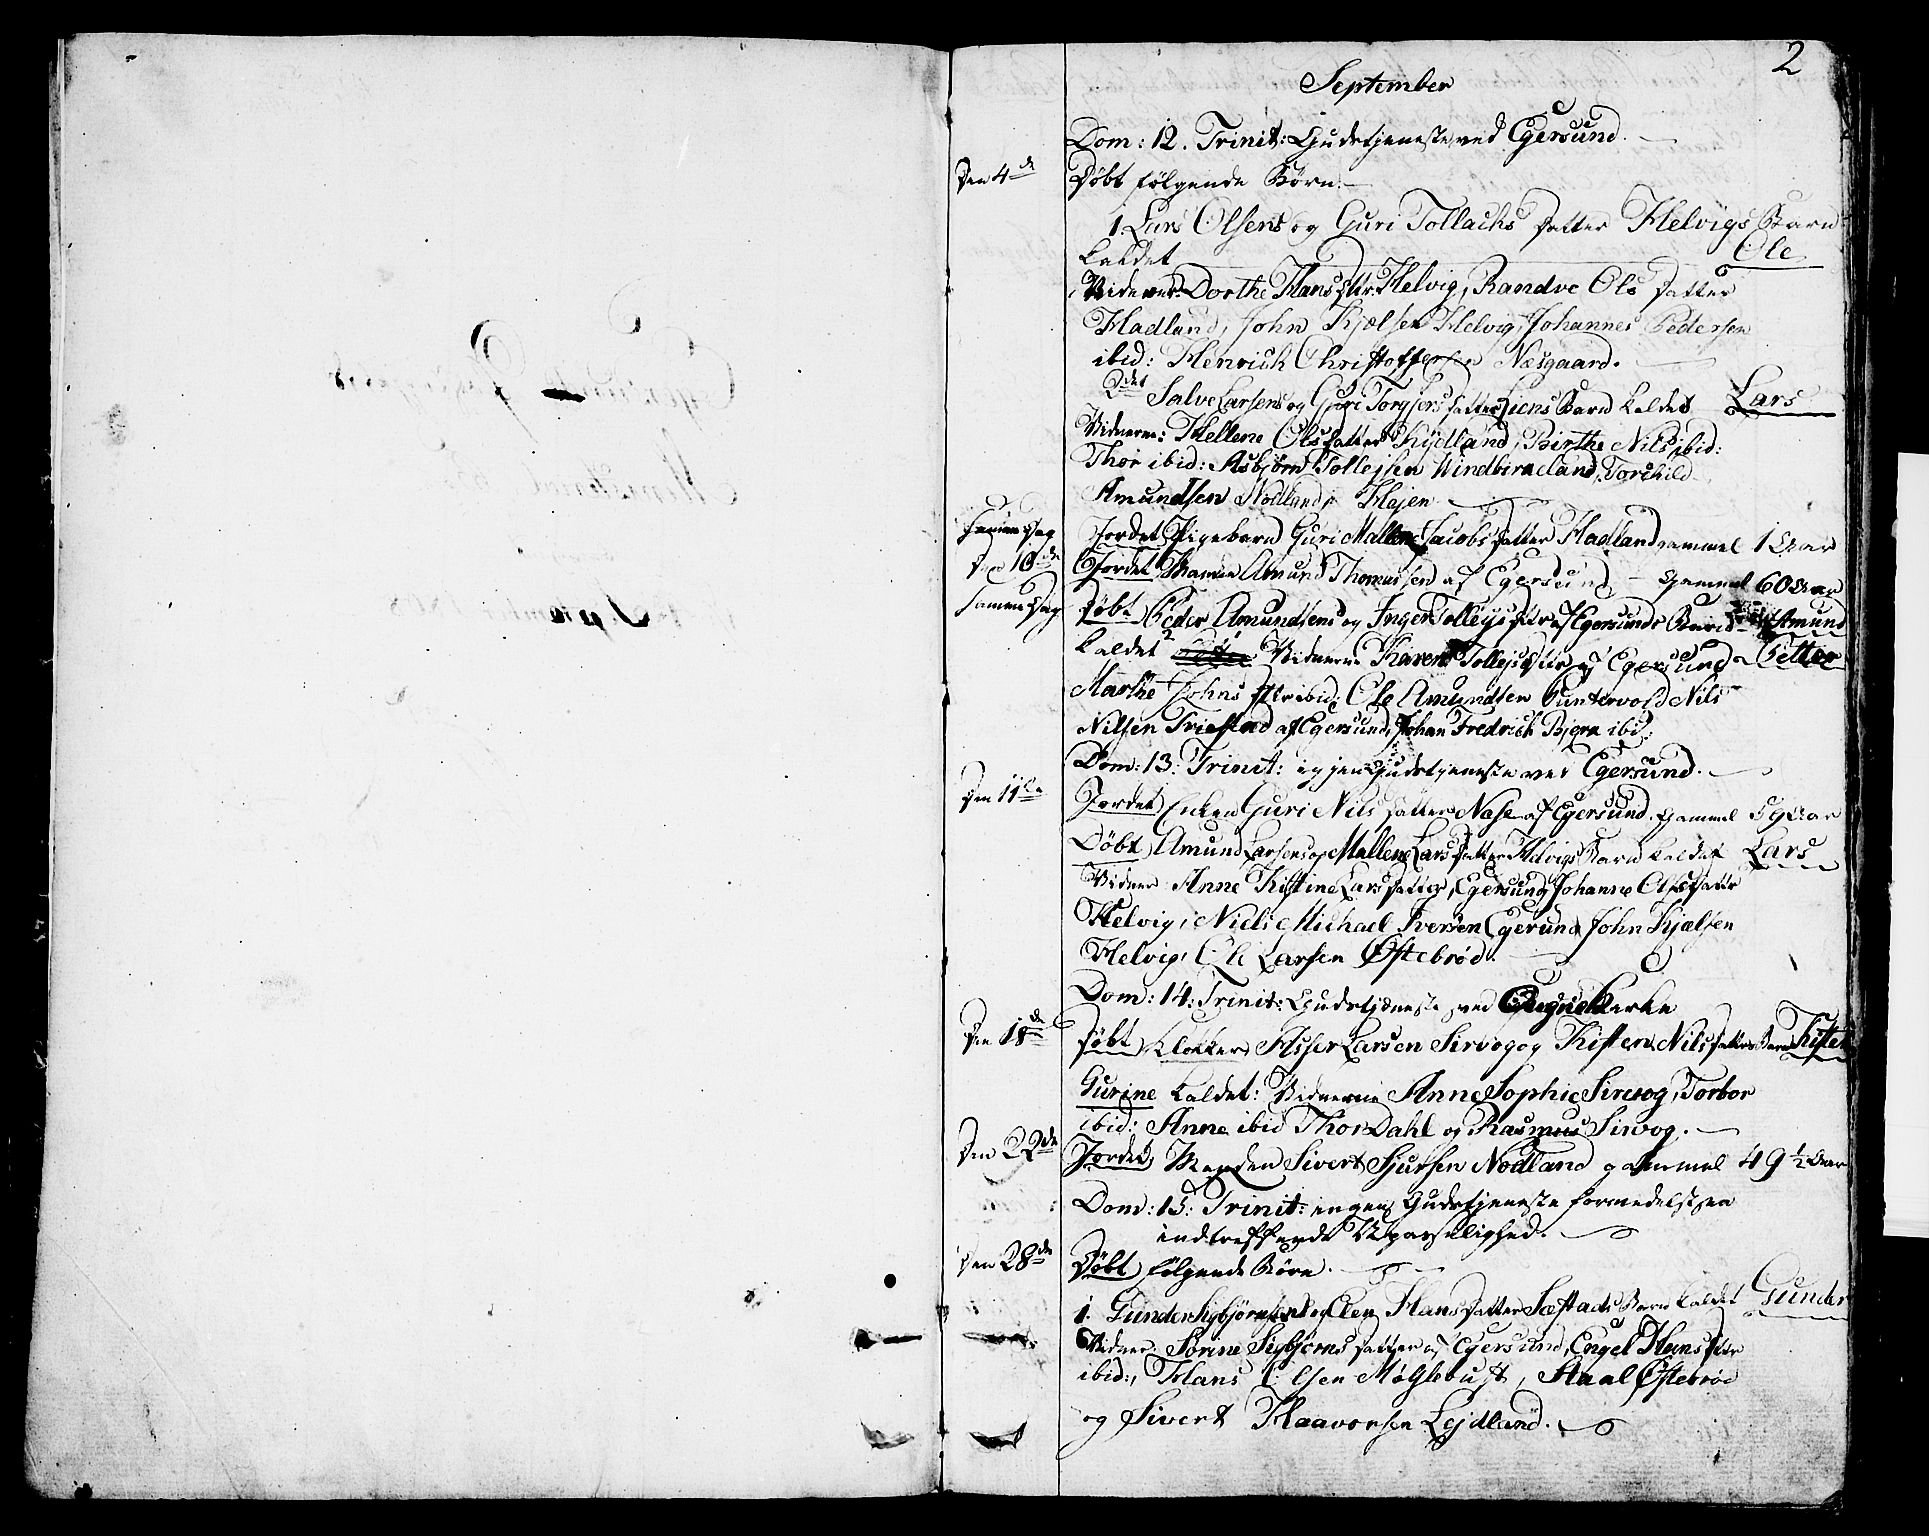 2
September
Dom: 12. Trinit: Gudstjeneste ved Egersund.
Den 4de Døbt følgende Børn.
1. Lars Olsens og Guri Tollachs Datter Helvigs Barn
kaldet Ole
Vidnerne: Dorthe Hans dtr: Helvig, Randve Ols Datter
Hadland, John Kjælsen Helvig, Johannes Pedersen
ibid: Henrich Christoffersen Næsgaard.
2det Salve Larsens og Guri Torgjers Datter Liens Barn kaldet Lars
Vidnerne: Hellene Olsdatter Rydland, Birthe Nils ibid:
Thor ibid: Asbjørn Tollejsen Windbiraeland, Torchild
Amundsen Nodlands Hejen
Samme Dag Jordet Pigebarn Guri Mallene Jacobs Datter Hadland gammel 1 Aar
Den 10de Jordet Manden Amund Thomassen af Egersund gammel 60 Aar
Samme Dag Døbt Peder Amundsens og Inger Tollejs dtr af Egersunds Barn Amund
kaldet Vidnerne Karen Tollejs dtr af Egersund Petter
Marthe Johns dtr ibid: Ole Amundsen Puntervold Nils
Nilsen Triestad af Egersund, Johan Fredrich Bjern ibid:
Dom: 13: Trinit: igjen Gudstjeneste ved Egersund.
Den 11te Jordet Enken Guri Nils Datter Nase af Egersund. gammel 59 Aar
Døbt Amund Larsens og Mallene Lars Datter Helvigs Barn kaldet Lars
Vidner Anne Kistine Lars Datter, Egersund Johanne Olsdatter
Helvig, Niels Michael Iversen Egerund John Kjælsen
Helvig, Ole Larsen Øftebrød.
Dom: 14: Trinit: Gudstjeneste ved Ogne Kirke
Den 18de Døbt Klokker Asser Larsen Sirvog og Kisten Nilsdatters Barn Kisten
Gurine kaldet: Vidnerne Anne Sophie Sirevog, Torbor
ibid: Anne ibid Thor Dahl og Rasmus Sirvog.
Den 22de Jordet Manden Sivert Sjursen Nodland gammel 49 1/2 Aar
Dom: 15: Trinit: ingen Gudstjeneste formedelst en
indtreffende Upasselighed.
Den 28de Døbt følgende Børn.
1. Gunder Sigbjørnsens og Elen Hans Datter Sæstads Barn kaldet Gunder
Vidner. Sorine Sigbjørns Datter af Egersund, Engel Hans dtr
ibid:, Hans Olsen Møglebust, Staal Øftebrød
og Sivert Haavorsen Lejdland.